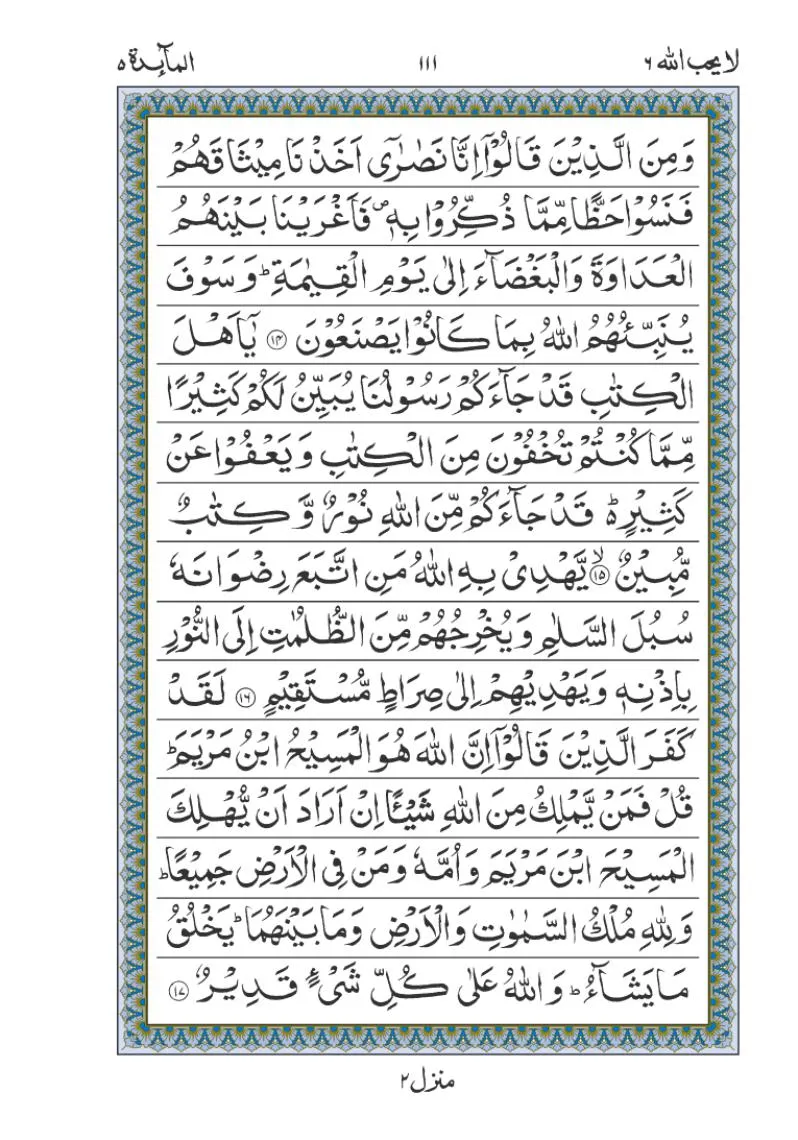 لا یحب الله ۶ ۱۱۱ المآئدة ۵
وَمِنَ الَّذِيْنَ قَالُوْۤا اِنَّا نَصٰرٰۤى اَخَذْنَا مِيْثَاقَهُمْ
فَنَسُوْا حَظًّا مِّمَّا ذُكِّرُوْا بِهٖ ۪ فَاَغْرَيْنَا بَيْنَهُمُ
الْعَدَاوَةَ وَالْبَغْضَآءَ اِلٰى يَوْمِ الْقِيٰمَةِ ؕ وَسَوْفَ
يُنَبِّئُهُمُ اللّٰهُ بِمَا كَانُوْا يَصْنَعُوْنَ ۝۱۴ يٰۤاَهْلَ
الْكِتٰبِ قَدْ جَآءَكُمْ رَسُوْلُنَا يُبَيِّنُ لَكُمْ كَثِيْرًا
مِّمَّا كُنْتُمْ تُخْفُوْنَ مِنَ الْكِتٰبِ وَيَعْفُوْا عَنْ
كَثِيْرٍ ؕ قَدْ جَآءَكُمْ مِّنَ اللّٰهِ نُوْرٌ وَّكِتٰبٌ
مُّبِيْنٌ ۝۱۵ ۙ يَّهْدِىْ بِهِ اللّٰهُ مَنِ اتَّبَعَ رِضْوَانَهٗ
سُبُلَ السَّلٰمِ وَيُخْرِجُهُمْ مِّنَ الظُّلُمٰتِ اِلَى النُّوْرِ
بِاِذْنِهٖ وَيَهْدِيْهِمْ اِلٰى صِرَاطٍ مُّسْتَقِيْمٍ ۝۱۶ لَقَدْ
كَفَرَ الَّذِيْنَ قَالُوْۤا اِنَّ اللّٰهَ هُوَ الْمَسِيْحُ ابْنُ مَرْيَمَ ؕ
قُلْ فَمَنْ يَّمْلِكُ مِنَ اللّٰهِ شَيْـًٔا اِنْ اَرَادَ اَنْ يُّهْلِكَ
الْمَسِيْحَ ابْنَ مَرْيَمَ وَاُمَّهٗ وَمَنْ فِى الْاَرْضِ جَمِيْعًا ؕ
وَلِلّٰهِ مُلْكُ السَّمٰوٰتِ وَالْاَرْضِ وَمَا بَيْنَهُمَا ؕ يَخْلُقُ
مَا يَشَآءُ ؕ وَاللّٰهُ عَلٰى كُلِّ شَىْءٍ قَدِيْرٌ ۝۱۷
منزل ۲